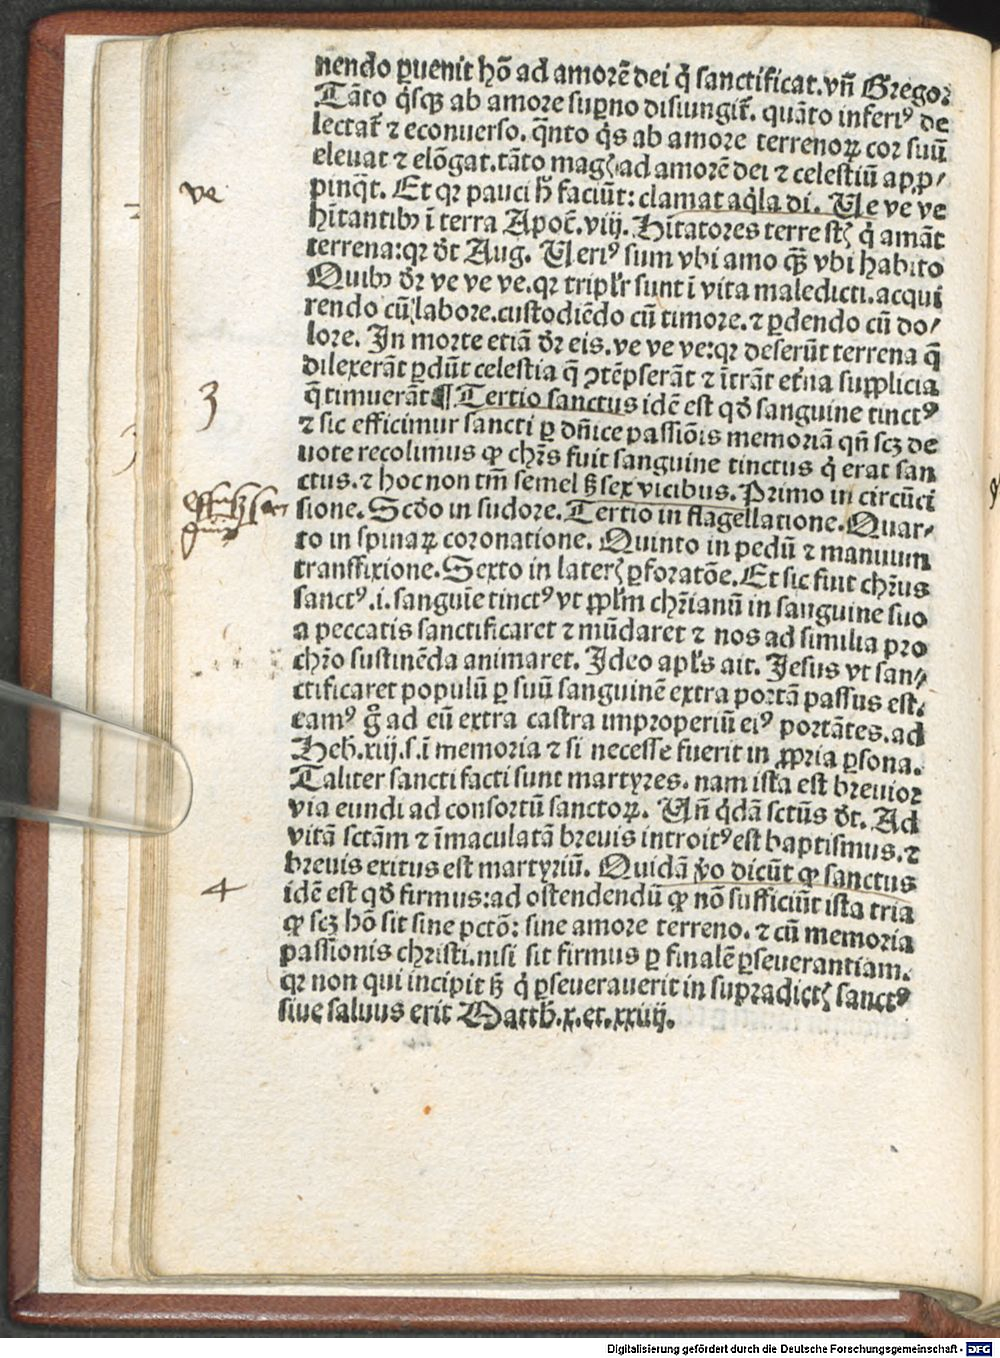 nendo ꝑuenit hō ad amorē dei q̇ sanctificat. vn̄ Gregoꝛ
Tāto q̇sqꝫ ab amore suꝑno disiungit᷑. quāto inferiꝰ de
lectat᷑ ⁊ econuerso. q̄nto q̇s ab amore terrenoꝝ cor suū
eleuat ⁊ elōgat. tāto magꝭ ad amorē dei ⁊ celestiū ap̲p̲/
pinq̇t. Et qꝛ pauci h̄ faciūt: clamat aq̇la di. Ue ve ve
ve
hītantibꝰ ī terra Apoc̄. viij. Hītatores terre st̄ꝭ q̇ amāt
terrena: qꝛ dt̄ Aug. Ueriꝰ sum vbi amo qꝫ̄ vbi habito
Quibꝰ dr̄ ve ve ve. qꝛ tripl̄r sunt ī vita maledicti. acqui
rendo cū labore. custodiēdo cū timore. ⁊ ꝑdendo cū do/
lore. In morte etiā dr̄ eis. ve ve ve: qꝛ deserūt terrena q̄
dilexerāt ꝑdūt celestia q̄ ꝯtēpserāt ⁊ ītrāt et̄na supplicia
3
q̄ timuerāt ¶ Tertio sanctus idē est qd̄ sanguine tinctꝰ
⁊ sic efficimur sancti ꝑ dn̄ice passiōis memoriā qn̄ scꝫ de
uote recolimus ꝙ chr̄s fuit sanguine tinctus q̇ erat san
ctus. ⁊ hoc non tm̄ semel sꝫ sex vicibus. Primo in circūci
sione. Scd̄o in sudore. Tertio in flagellatione. Quar-
to in spinaꝝ coronatione. Quinto in pedū ⁊ manuum
transfixione. Sexto in laterꝭ ꝑforatōe. Et sic fuit chr̄us
sanctꝰ .i. sanguīe tinctꝰ vt p̲pl̄m chr̄ianū in sanguine suo
a peccatis sanctificaret ⁊ mūdaret ⁊ nos ad similia pro
chr̄o sustinēda animaret. Ideo apl̄s ait. Jesus vt san/
ctificaret populū ꝑ suū sanguinē extra portā passus est.
eamꝰ g̊ ad eū extra castra improperiū eiꝰ portātes. ad
Heb̄. xiij. s. ī memoria ⁊ si necesse fuerit in p̲pria ꝑsona.
Taliter sancti facti sunt martyres. nam ista est breuior
via eundi ad consortiū sanctoꝝ. Un̄ q̇dā sctūs dt̄. Ad
vitā sctām ⁊ īmaculatā breuis introitꝰ est baptismus. ⁊
breuis exitus est martyriū. Quidā v̄o dicūt ꝙ sanctus
4
idē est qd̄ firmus: ad ostendendū ꝙ nō sufficiūt ista tria
ꝙ scꝫ hō sit sine pctō: sine amore terreno. ⁊ cū memoria
passionis christi. nisi sit firmus ꝑ finalē ꝑseuerantiam.
qꝛ non qui incipit sꝫ q̇ ꝑseuerauerit in supradictꝭ sanctꝰ
siue saluus erit Matth̄. x. et. xxiiij.
Digitalisierung gefördert durch die Deutsche Forschungsgemeinschaft - DFG